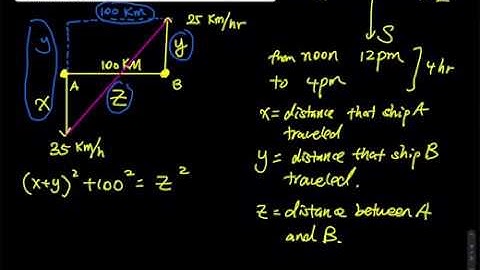 100 KM
25 KM/hr
y
y
100 KM
A
B
x
Z
35 KM/h
(x+y)² + 100² = Z²
S
from noon 12pm
to 4pm
4hr
x = distance that ship A
traveled
y = distance that ship B
traveled.
z = distance between A
and B.